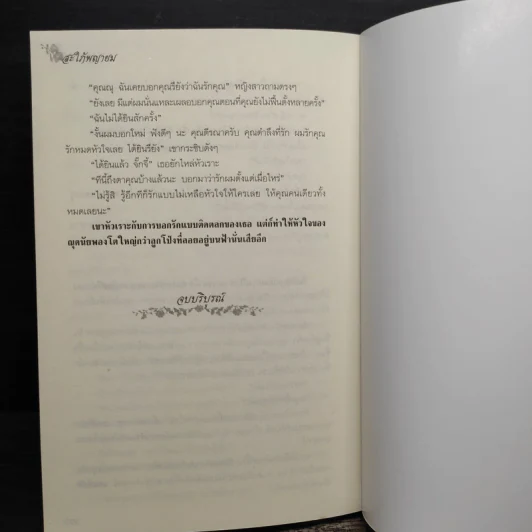 สะใภ้พญายม
"คุณณุ ฉันเคยบอกคุณรึยังว่าฉันรักคุณ" หญิงสาวถามตรงๆ
"ยังเลย มีแต่ผมนั่นแหละเผลอบอกคุณตอนที่คุณยังไม่ฟื้นตั้งหลายครั้ง"
"ฉันไม่ได้ยินสักครั้ง"
"งั้นผมบอกใหม่ ฟังดีๆ นะ คุณตีรณาครับ คุณตำลึงที่รัก ผมรักคุณ
รักหมดหัวใจเลย ได้ยินรึยัง" เขากระซิบดังๆ
"ได้ยินแล้ว จั๊กจี้" เธอยักไหล่หัวเราะ
"ทีนี้ถึงตาคุณบ้างแล้วนะ บอกมาว่ารักผมตั้งแต่เมื่อไหร่"
"ไม่รู้สิ รู้อีกทีก็รักแบบไม่เหลือหัวใจให้ใครเลย ให้คุณคนเดียวทั้ง
หมดเลยนะ"
เขาหัวเราะกับการบอกรักแบบติดตลกของเธอ แต่ก็ทำให้หัวใจของ
ณุตนัยพองโตใหญ่กว่าลูกโป่งที่ลอยอยู่บนฟ้านั่นเสียอีก
จบบริบูรณ์